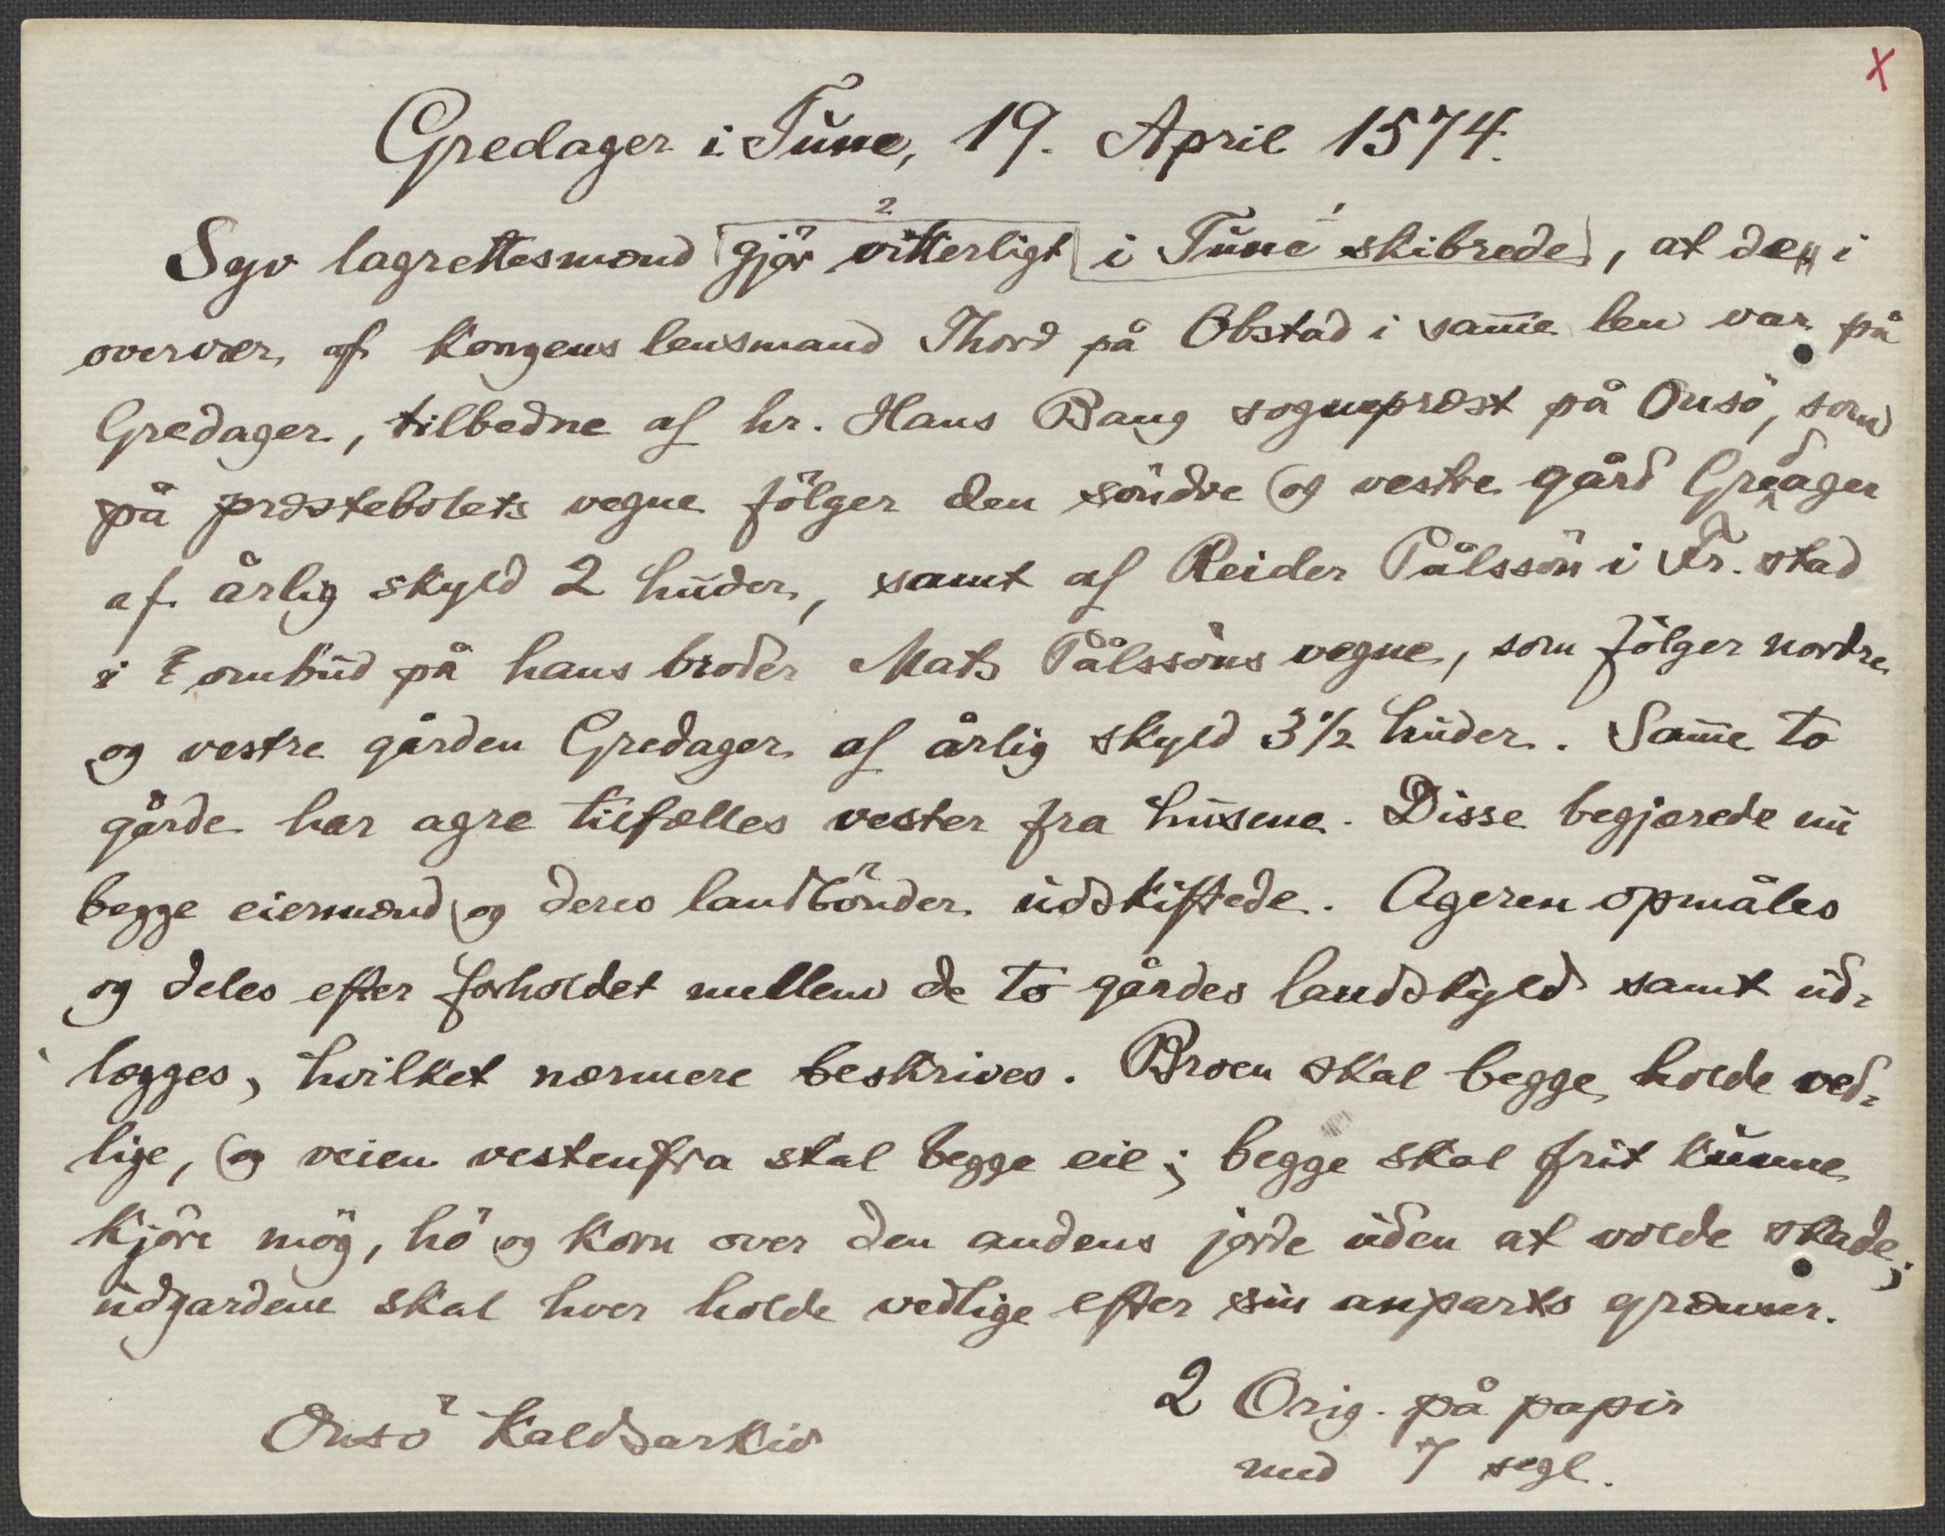 X
Gredager i Tune, 19. April 1574.
2 1
Syv lagrettesmænd gjör vitterligt i Tune skibrede, at de i
overvær af kongens lensmand Thord på Obstad i sam̄e len var på
Gredager, tilbedne af hr. Hans Bang sogneprest på Onsö, som
på præstebolets vegne fölger den söndre og vestre gård Gredager
af årlig skyld 2 huder, samt af Reider Pålssön i Fr.stad
i ombud på hans broder Mats Pålssöns vegne, som fölger nordre
og vestre gården Gredager af årlig skyld 3 1/2 huder. Sam̄e to
gårde har agre tilfælles vester fra husene. Disse begjærede nu
begge eiermænd og deres landbönder udskiftede. Ageren opmåles
og deles efter forholdet mellem de to gårdes landskyld samt ud-
lægges, hvilket nærmere beskrives. Broen skal begge holde ved-
lige, og veien vestenfra skal begge eie; begge skal frit kunne
kjöre mög, hö og korn over den andens jorde uden at volde skade;
udgardene skal hver holde vedlige efter sin anparts grænser.
2 Orig. på papir
Onsö kaldsarkiv
med 7 segl.